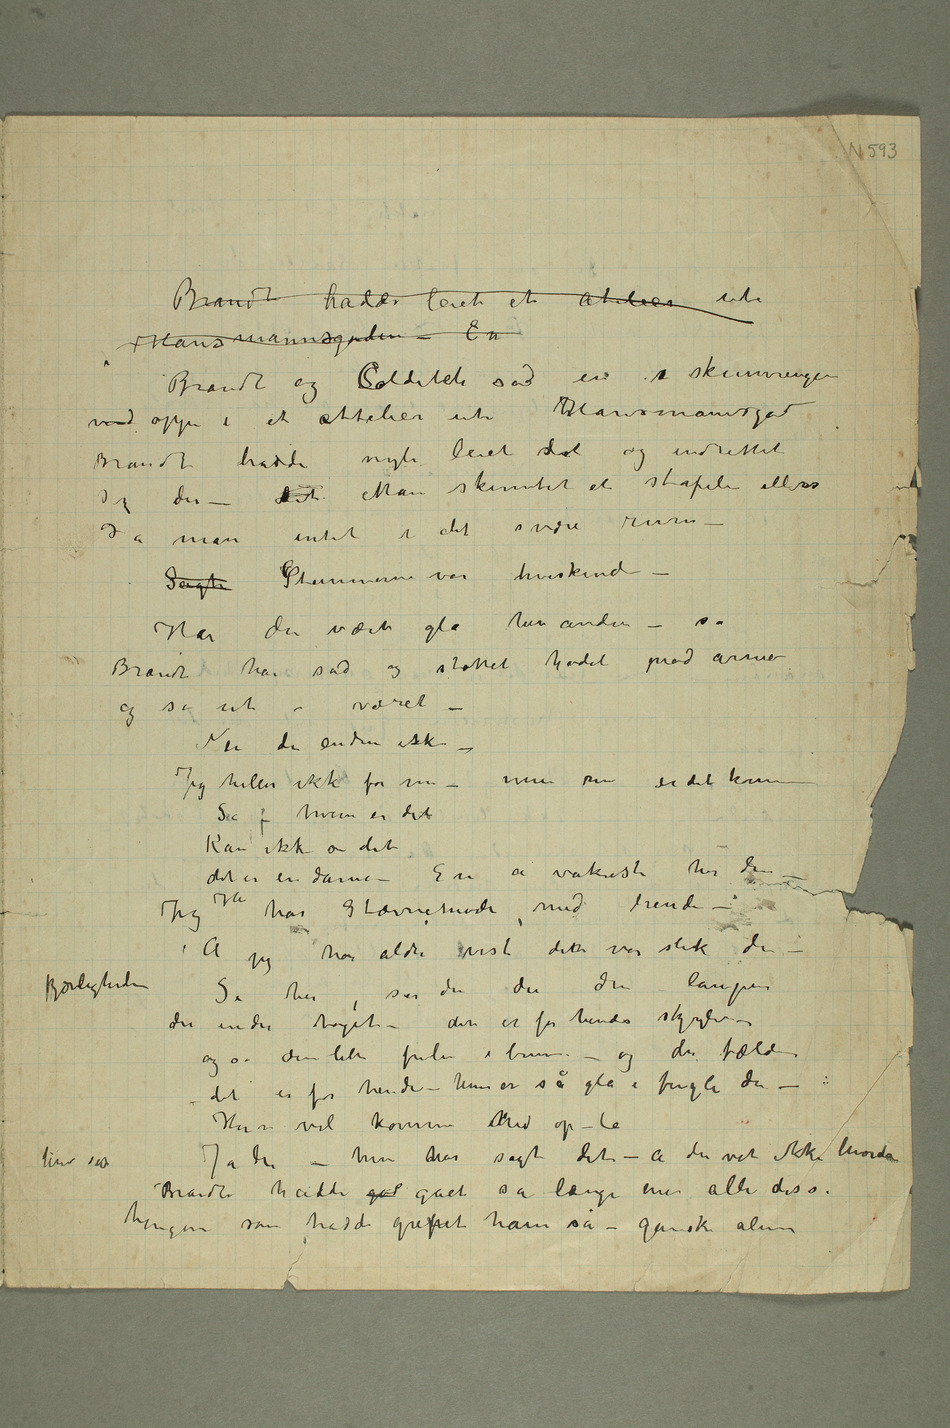 N 593
Brandt hadde leiet et atelier ute
Hansmannsgaden – En
Brandt og sad en skumringen
oppe i et attelier ute Hansmannsgad
Brandt hadde nylig leiet det og indrettet
sig der – Man skimtet et stafeli ellers
så man intet i det svære rum –
Sagte Stemmerne var hviskende –
Har du vært gla hinanden – sa
Brandt han sad og støttet hodet mod armen
og så ut i været –
Nei du endnu ikke –
Jeg heller ikke før nu – men nu er det kommet
Sa j hvem er det
Kan ikke si det
det er en dame – En a vakreste her i
Jeg Ha har Stævnemøde med hende –
A jeg har aldri vist det var slik du –
Kjærligheden
Se her, ser du den lampen
der under taget – den er for hendes skyld –
og så den lille fuglen i buret – og de
det er for hende – hun er så gla i fugle du –
Hun vil komme hid op – la
Ja du – hun har sagt det – A du vet ikke hvordan
Brandt hadde gad gået så længe med alle disse
tingene som hadde grepet ham så – ganske alene